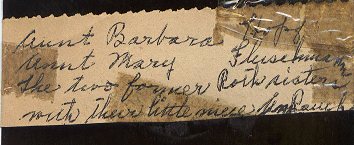 Aunt Barbara
Aunt Mary Fleischman
The two former Roth sisters
with their little niece